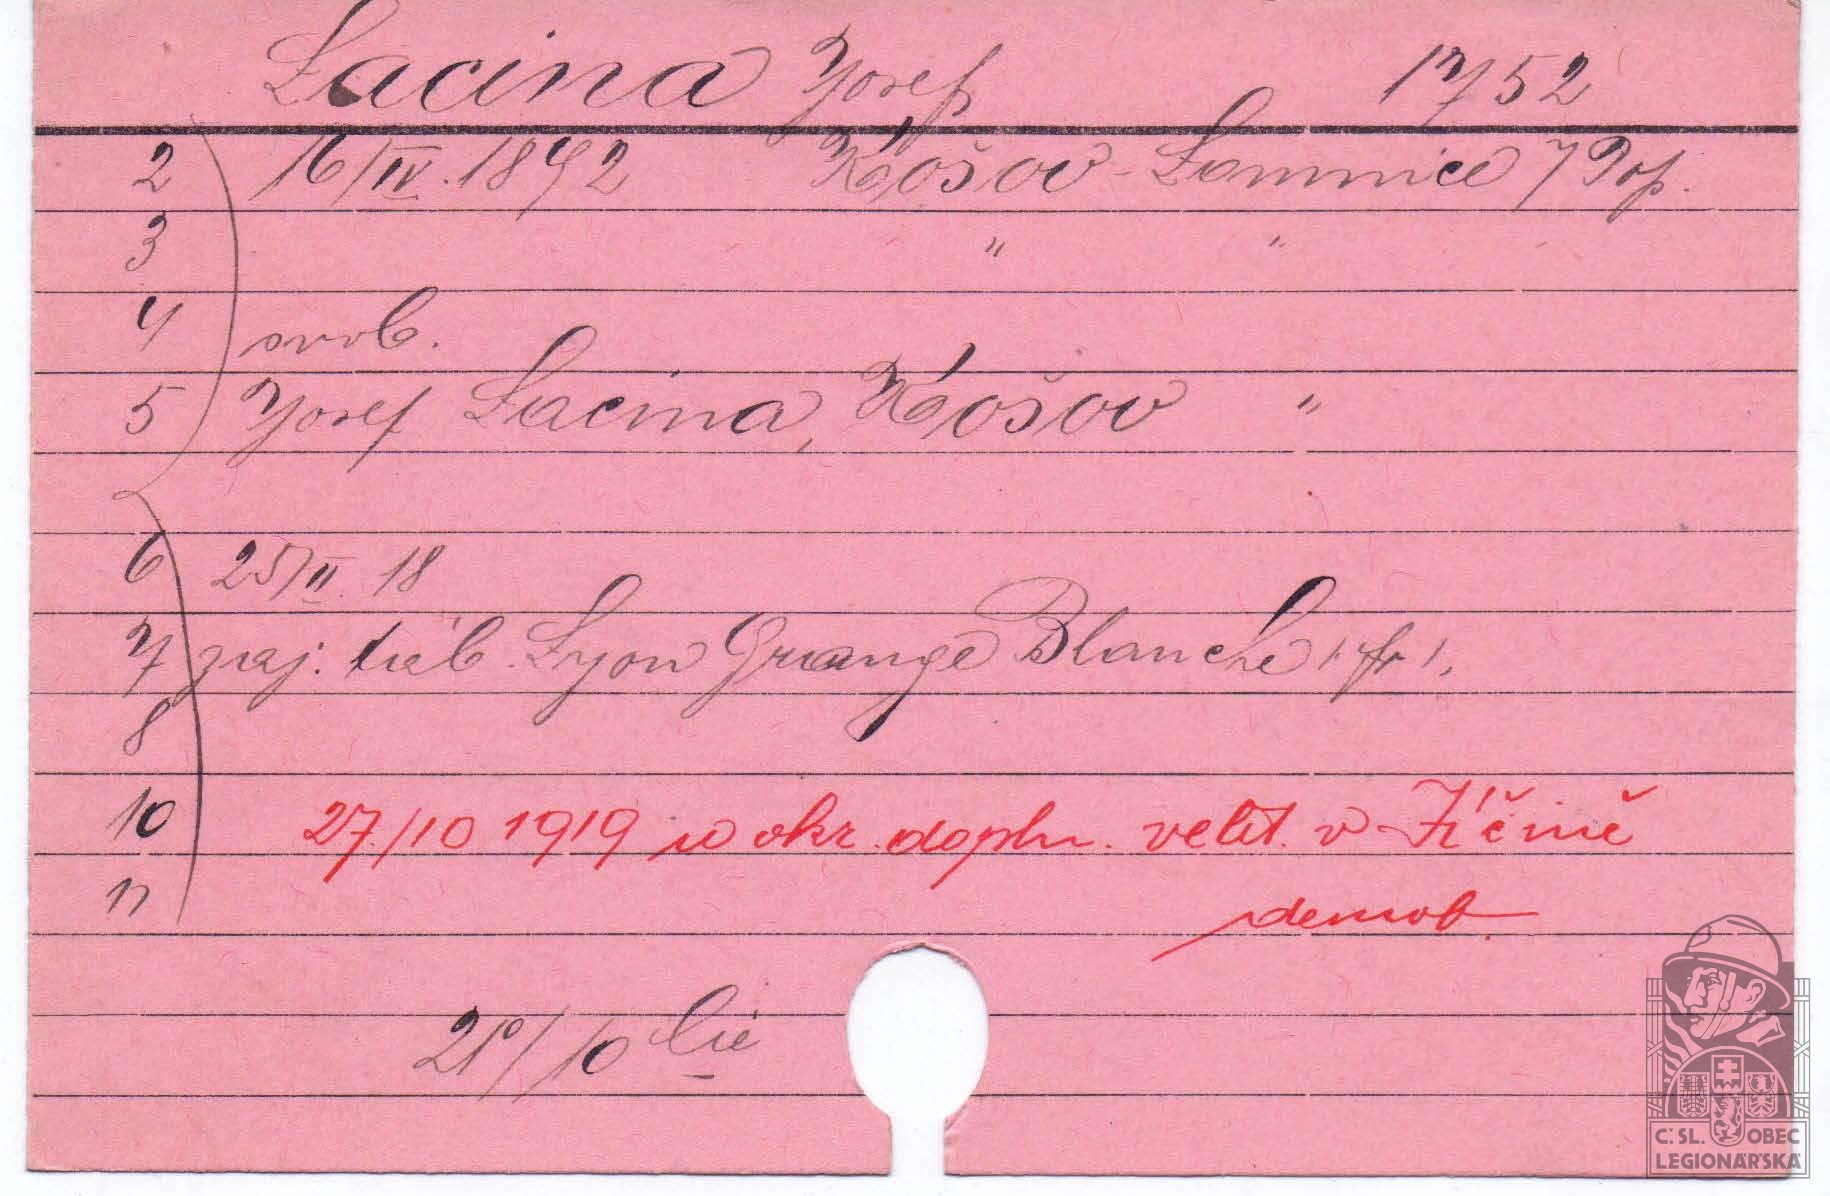 Lacina Josef 1752
2 16/IV. 1892 Košov - Lomnice / Pop.
3 " "
4 svob.
5 Josef Lacina, Košov "
6 25/II 18
7 zaj. táb. Lyon Grange Blanche / fr /.
8
10 27./10 1919 u okr. dopln. velit. v Jičíně
11 demob.
21º/10 Cie
Č.SL. OBEC
LEGIONÁŘSKÁ